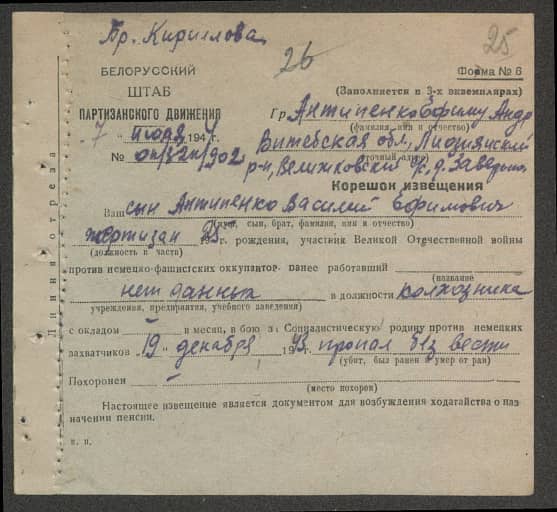 Бр. Кириллова
26
25
БЕЛОРУССКИЙ
ШТАБ
ПАРТИЗАНСКОГО ДВИЖЕНИЯ
Форма № 6
(Заполняется в 3-х экземплярах)
Гр. Антипенко Ефиму Андр
(фамилия, имя и отчество)
"7" июля 1944 г.
Витебская обл., Лиознянский
№ оп/3-2п/902
р-н, Велижковский с/с, д.
Корешок извещения
Ваш сын Антипенко Василий Ефимович
(муж, сын, брат, фамилия, имя и отчество)
партизан 1925 г. рождения, участник Великой Отечественной войны
(должность и часть)
против немецко-фашистских оккупантов ранее работавший
(название
нет данных в должности колхозника
учреждения, предприятия, учебного заведения)
с окладом – в месяц, в бою за Социалистическую родину против немецких
захватчиков "19" декабря 1943 пропал без вести
(убит, был ранен и умер от ран)
Похоронен –
(место похорон)
Настоящее извещение является документом для возбуждения ходатайства о наз-
начении пенсии.
Линия отреза